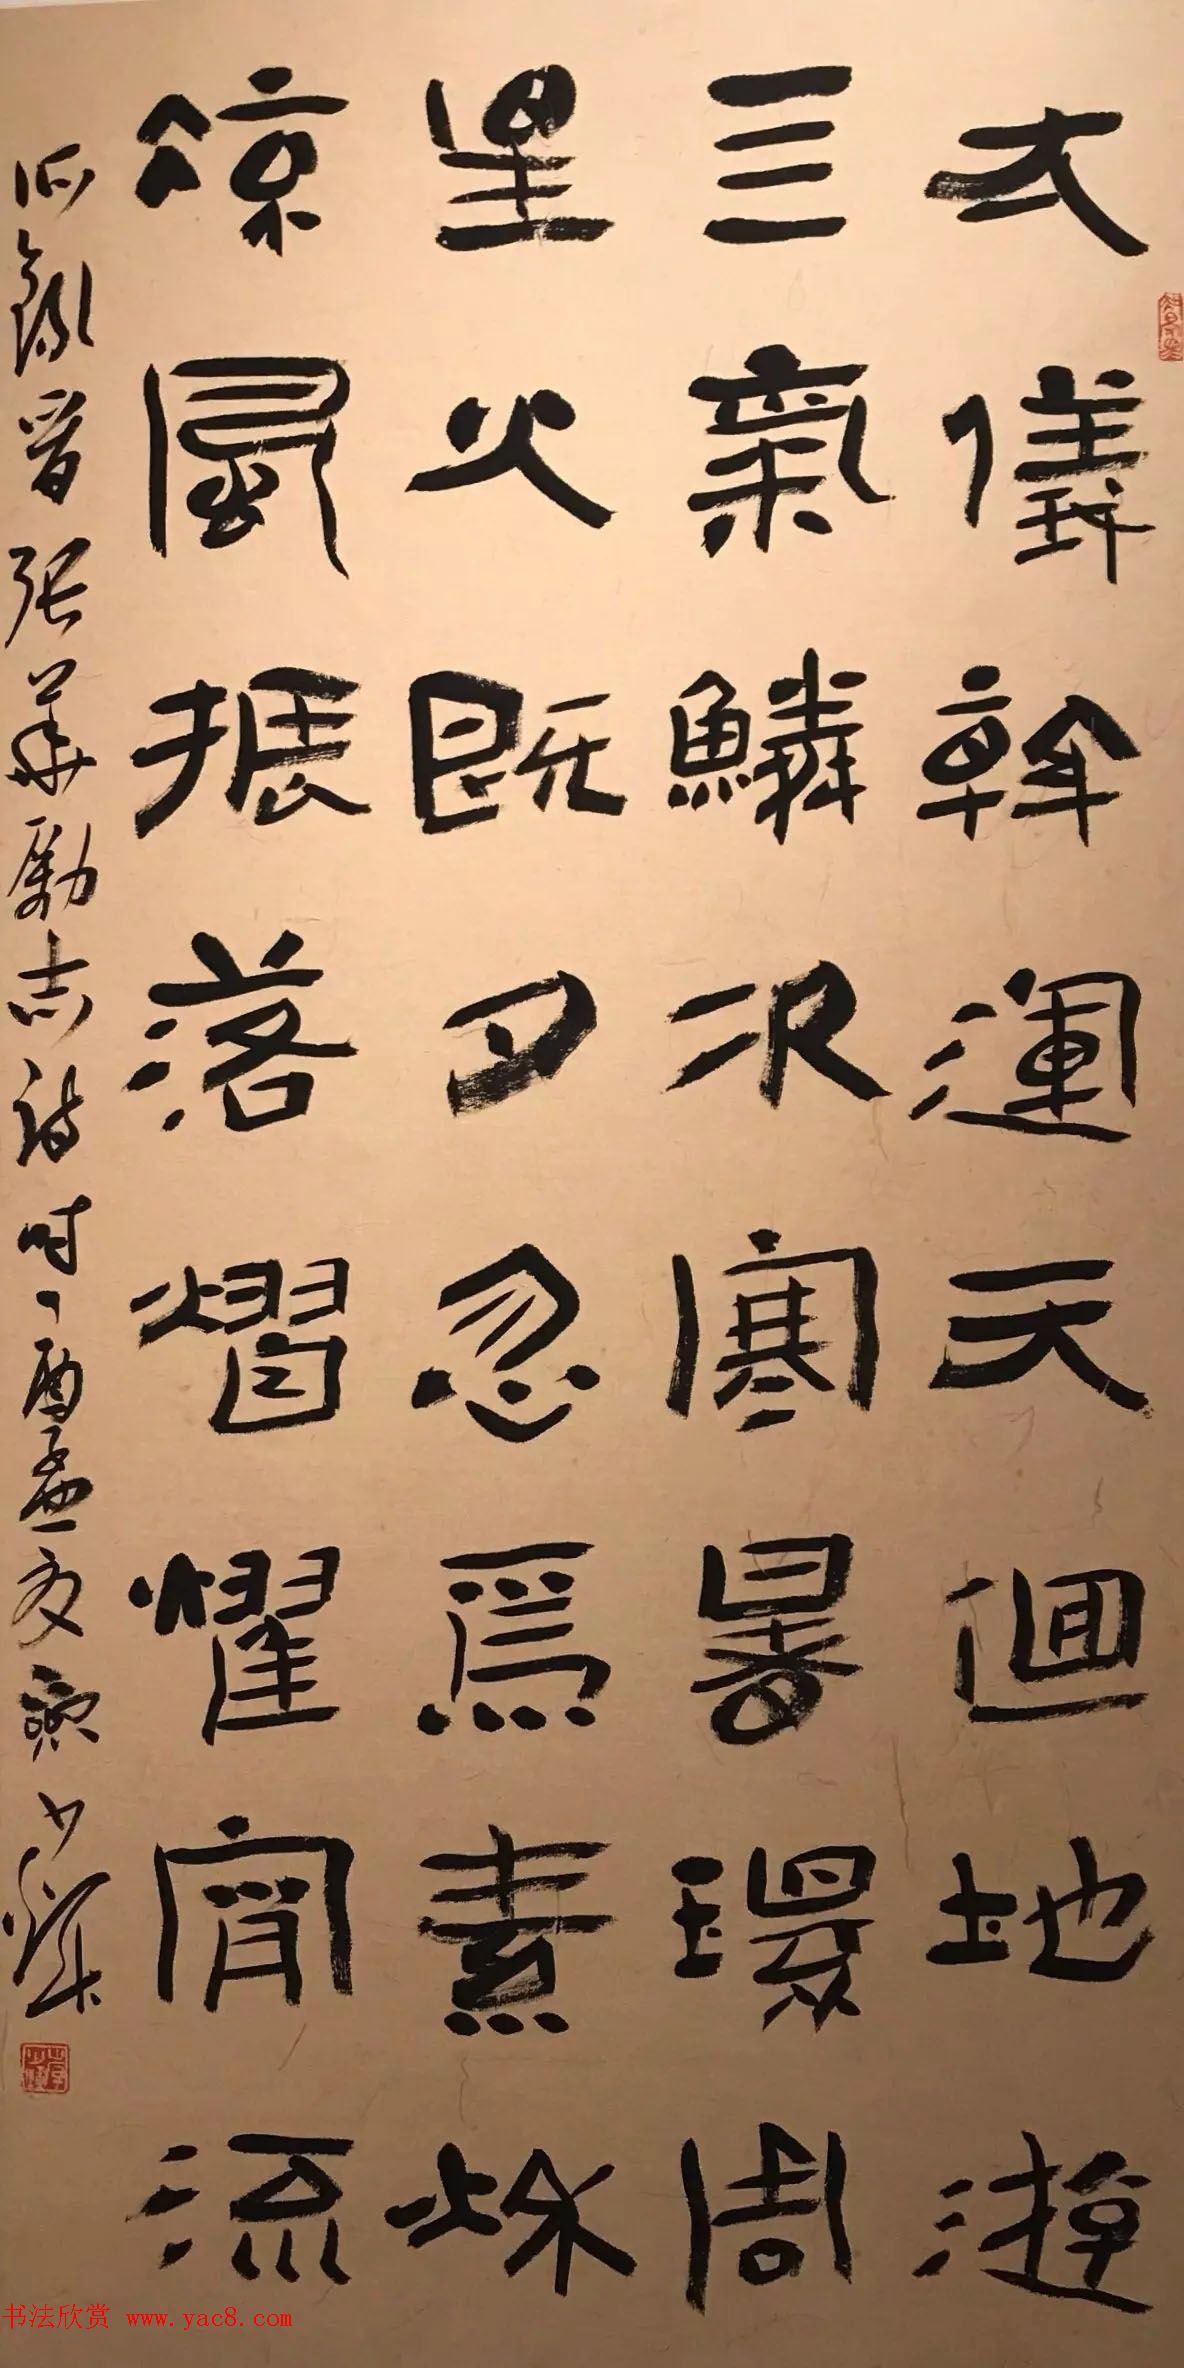 大儀斡運天迴地游
亖氣鱗次寒暑環周
星火既夕忽焉素秌
涼風振落熠燿宵流
錄晉張華勵志詩时丁酉孟夏
书法欣赏 www.yac8.com